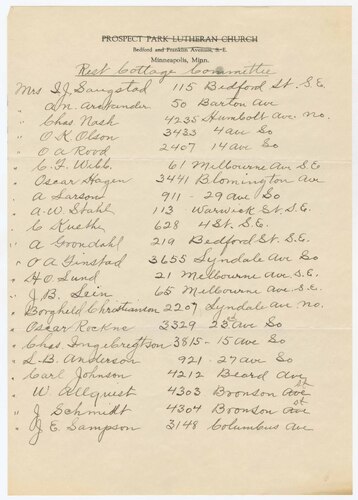 PROSPECT PARK LUTHERAN CHURCH
Bedford and Franklin Avenues, S. E.
Minneapolis, Minn.
Rest Cottage Committee
Mrs S. J. Sangstad 115 Bedford St. S.E.
" A. N. Arneander 50 Barton Ave
" Chas Nash 4235 Humbolt Ave. No.
" O K Olson 3433 4 Ave So
" O A Rood 2407 14 Ave So
" C. F. Wibb 61 Melbourne Ave S.E
" Oscar Hagen 3441 Blomington Ave
" A Larson 911 - 29 Ave So
" A. W. Stahl 113 Warwick St. S.E.
" C Kuethe 628 4 St. S.E.
" A Grondahl 219 Bedford St. S.E.
" O A Finstad 3655 Lyndale Ave So
" H O Lund 21 Melbourne Ave S.E.
" J. B. Lein 65 Melbourne Ave S.E.
" Borghild Christianson 2207 Lyndale Ave No.
" Oscar Rockne 3329 23rd Ave So
" Chas Ingebregtson 3815 - 15 Ave So
" L. B. Anderson 921 - 27 Ave So
" Carl Johnson 4212 Beard Ave
" W. Allquist 4303 Bronson St
" J Schmidt 4304 Bronson St
" J E. Sampson 3148 Columbus Ave